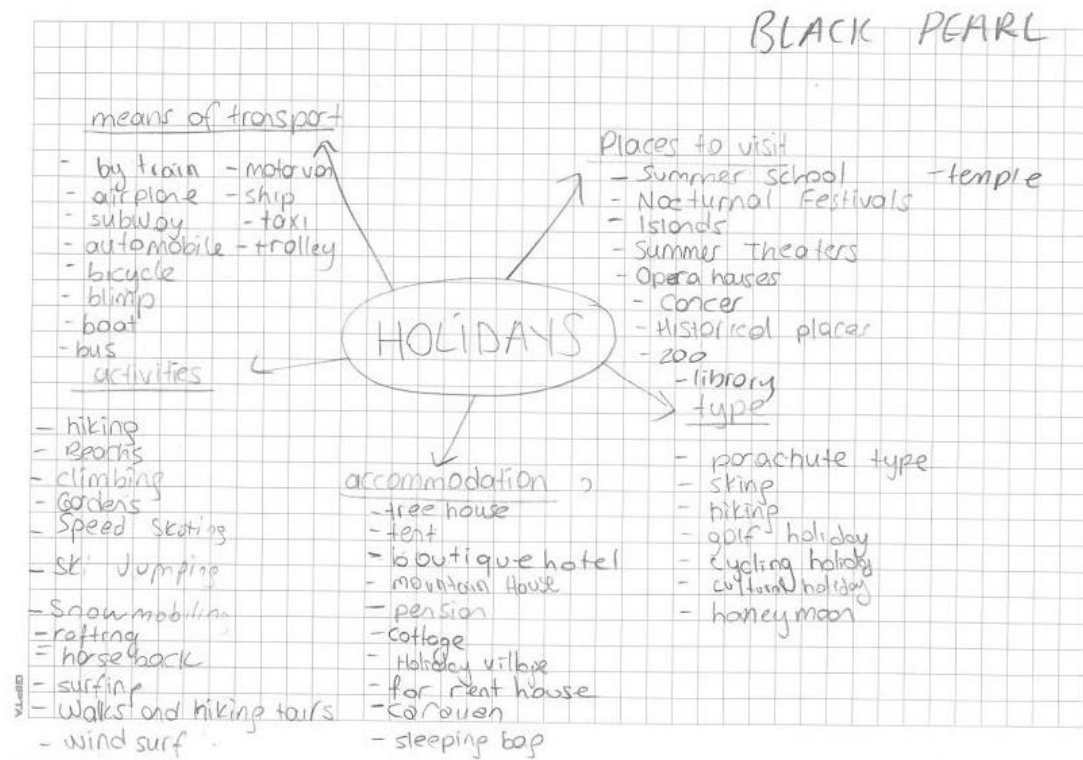 BLACK PEARL
means of transport
- by train - motorvan
- airplane - ship
- subway - taxi
- automobile - trolley
- bicycle
- blimp
- boat
- bus
Places to visit
- Summer school - temple
- Nocturnal Festivals
- Islands
- Summer Theaters
- Opera houses
- Concer
- Historical places
- zoo
- library
HOLİDAYS
activities
- hiking
- climbing
- Gardens
- Speed Skating
- Ski Jumping
- Snowmobiling
- rafting
- horse back
- surfing
- Walks and hiking tours
- wind surf
accommodation
- tree house
- tent
- boutique hotel
- mountain House
- pension
- cottage
- Holiday village
- for rent house
- caravan
- sleeping bag
type
- parachute type
- skiing
- hiking
- golf holiday
- cycling holiday
- cultural holiday
- honeymoon